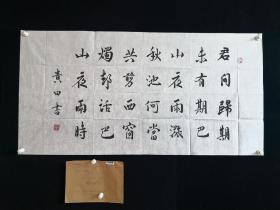 君問歸期
未有期巴
山夜雨漲
秋池何當
共剪西窗
燭却話巴
山夜雨時
田書